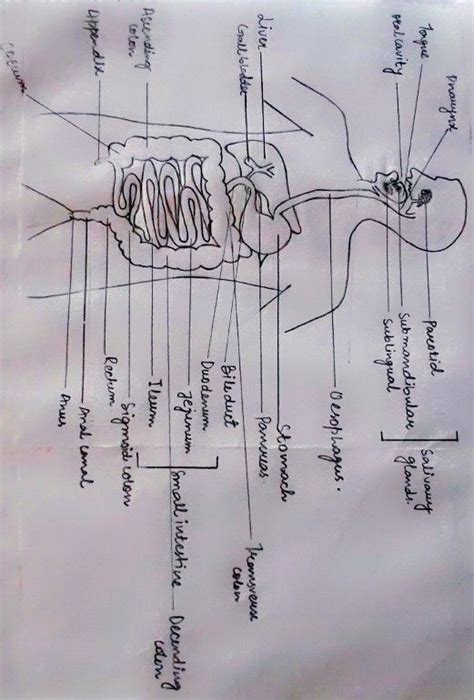 Pharynx
Tongue
oralcavity
Liver
Gallbladder
Ascending
colon
Appendix
caecum
Parotid
Submandibular
Sublingual
Salivary
glands.
Oesophagus.
Stomach
Pancreas
Transverse
colon
Bileduct
Duodenum
Jejunum
Ileum
Small intestine
Decending
colon
Sigmoid colon
Rectum
Anal canal
Anus